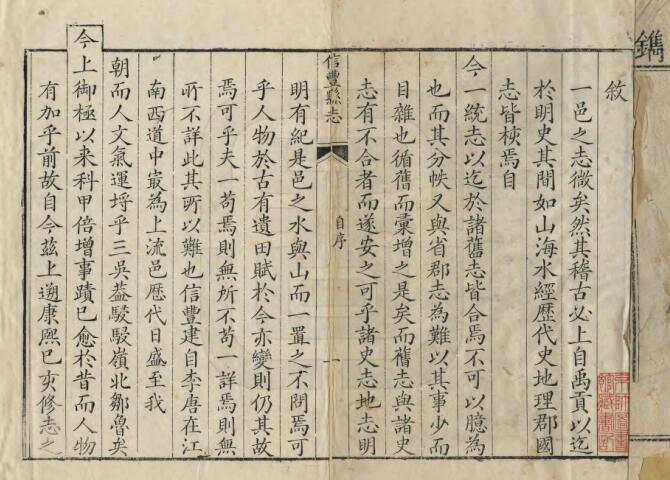 敘
一邑之志微矣然其稽古必上自禹貢以迄
於明史其間如山海水經歷代史地理郡國
志皆梜焉自
今一統志以迄於諸舊志皆合焉不可以臆為
也而其分帙又與省郡志為難以其事少而
目雜也循舊而彙增之是矣而舊志與諸史
志有不合者而遂安之可乎諸史志地志明
信豐縣志
自序
一
明有紀是邑之水與山而一置之不問焉可
乎人物於古有遺田賦於今亦變則仍其故
焉可乎夫一苟焉則無所不苟一詳焉則無
所不詳此其所以難也信豐建自李唐在江
南西道中最為上流邑歷代日盛至我
朝而人文氣運埒乎三吳葢駸駸嶺北鄒魯矣
今上御極以来科甲倍增事蹟已愈於昔而人物
有加乎前故自今茲上遡康熙已亥修志之
鐫